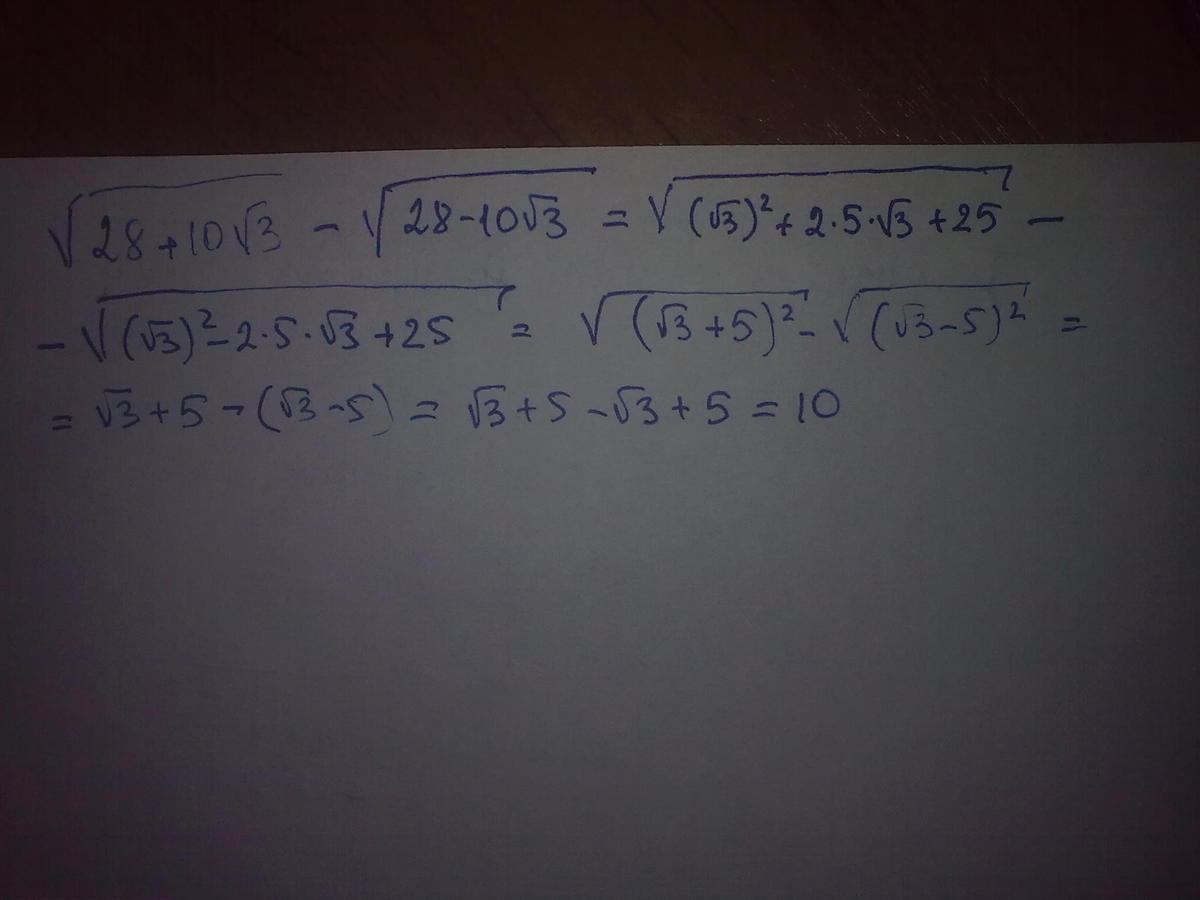 √(28+10√3) - √(28-10√3) = √((√3)²+2·5·√3+25) -
- √((√3)²-2·5·√3+25) = √((√3+5)²) - √((√3-5)²) =
= √3+5-(√3-5) = √3+5-√3+5 = 10